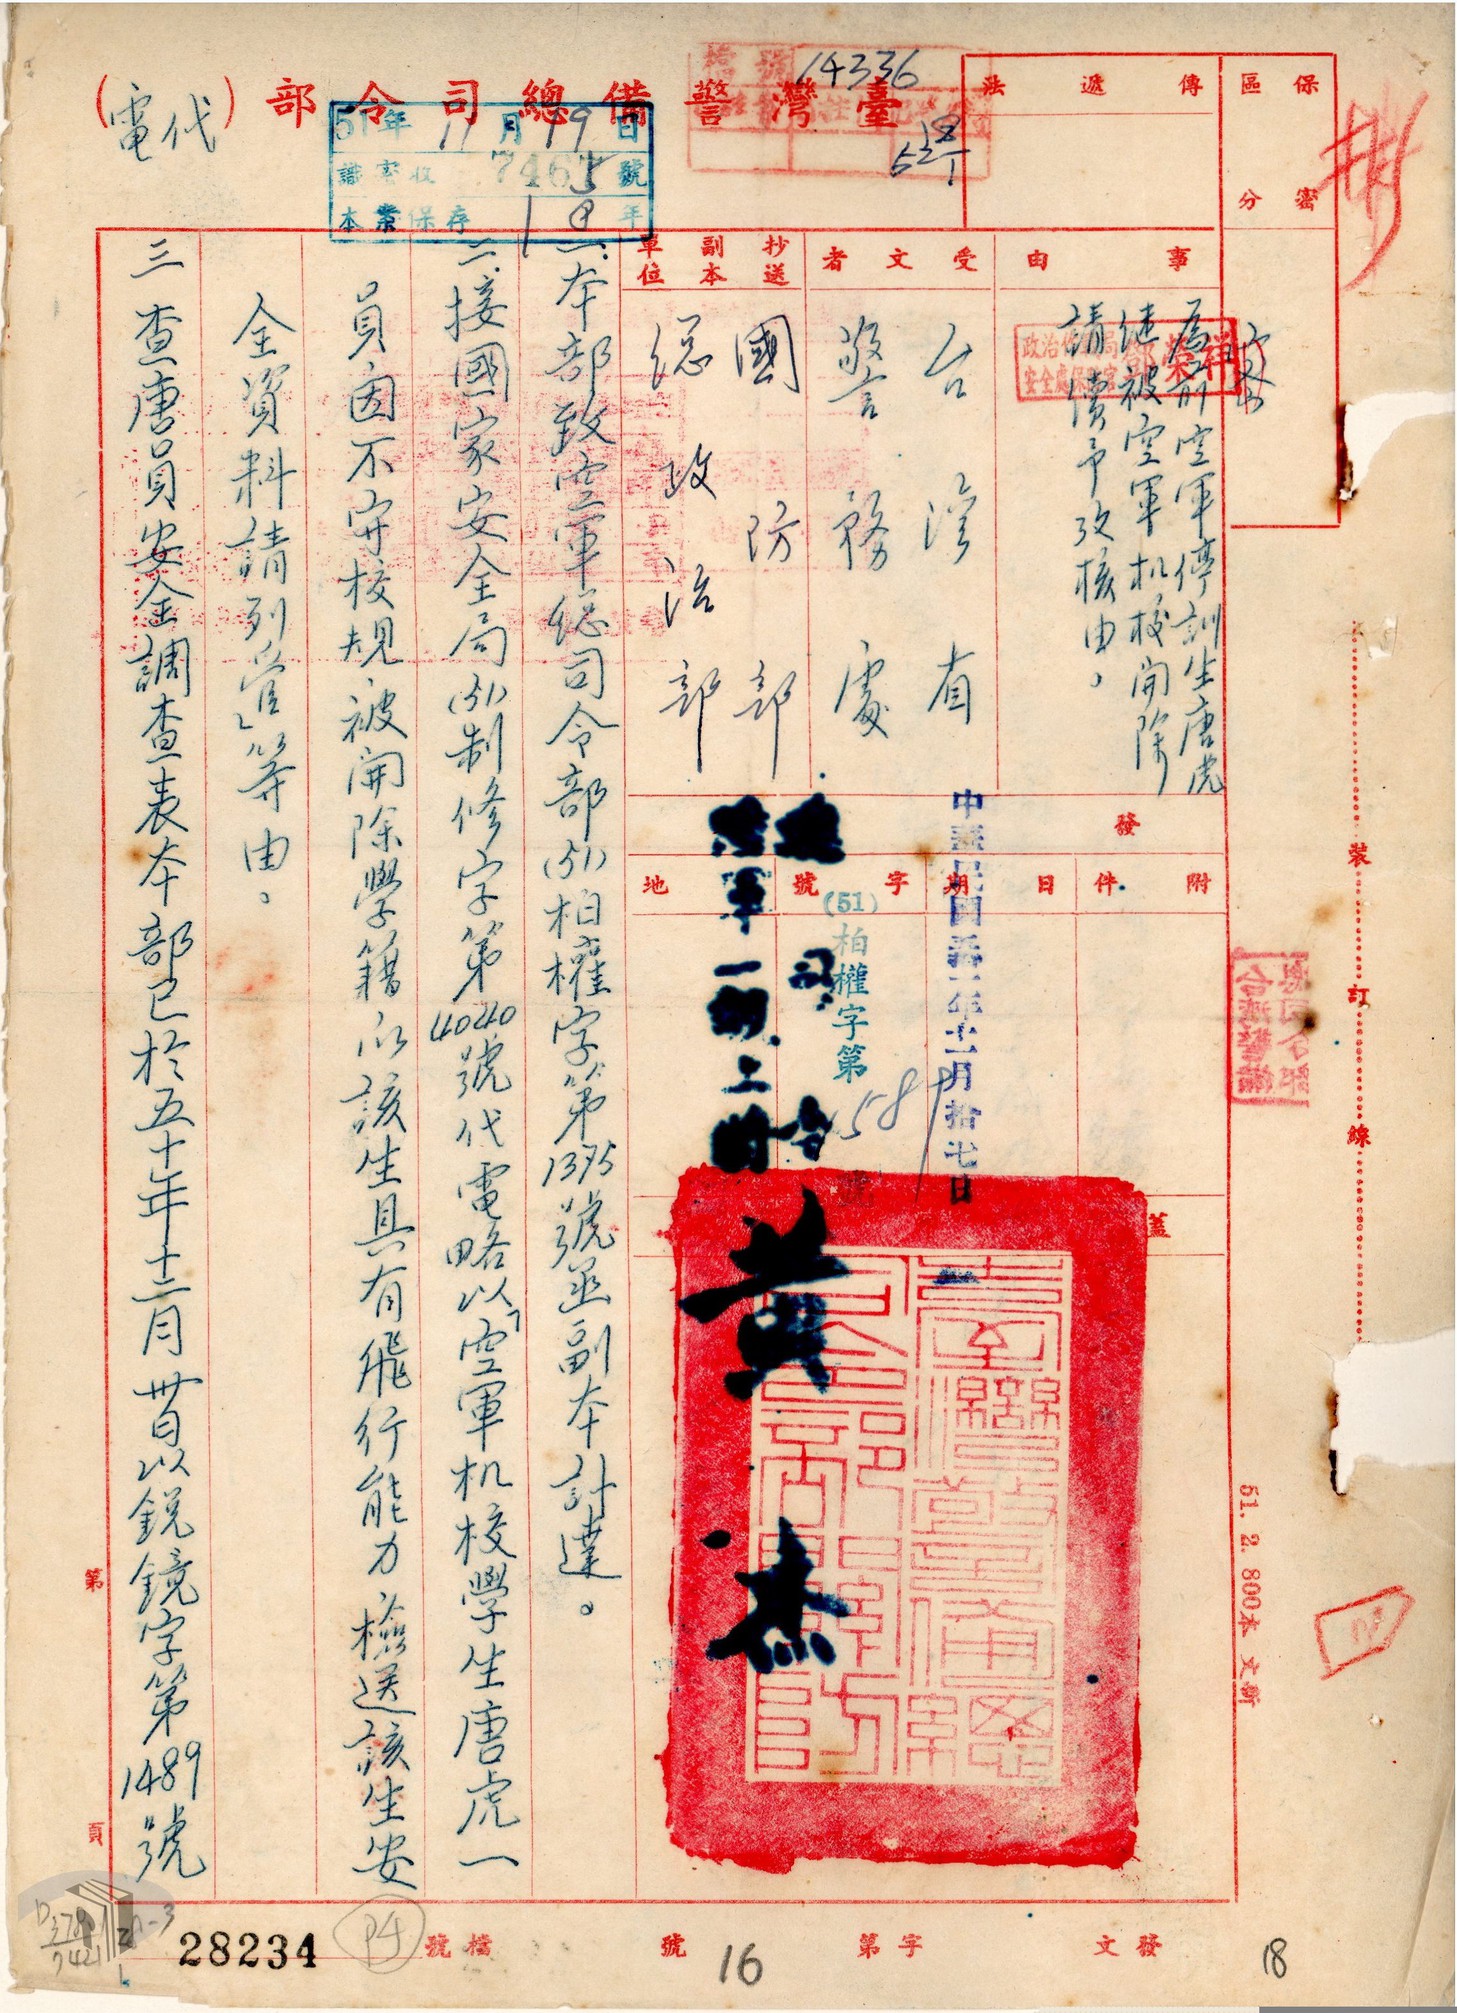 臺灣警備總司令部（代電）
14336
51年11月19日
識密收 746 號
本案保存 年
保密區分
密
傳遞法
事由
為前空軍停訓生唐虎
継被空軍机校開除
請續予攷核由。
受文者
台湾省
警務處
抄送副本單位
國防部
総政治部
發
附件
日期
中華民國五十一年十一月拾七日
字號
(51)柏權字第 號
地
蓋
總司令
陸軍一級上將
黃杰
一、本部致空軍総司令部(51)柏權字第1395號函副本計達。
二、接國家安全局(51)制修字第4040號代電略以「空軍机校學生唐虎一
員因不守校規被開除學籍以該生具有飛行能力檢送該生安
全資料請列管」等由。
三查唐員安全調查表本部已於五十年十二月廿日以銳鏡字第1489號
裝訂線
51. 2. 800本 文新
第 頁
發文 字第 16 號
檔號
P4
28234
18